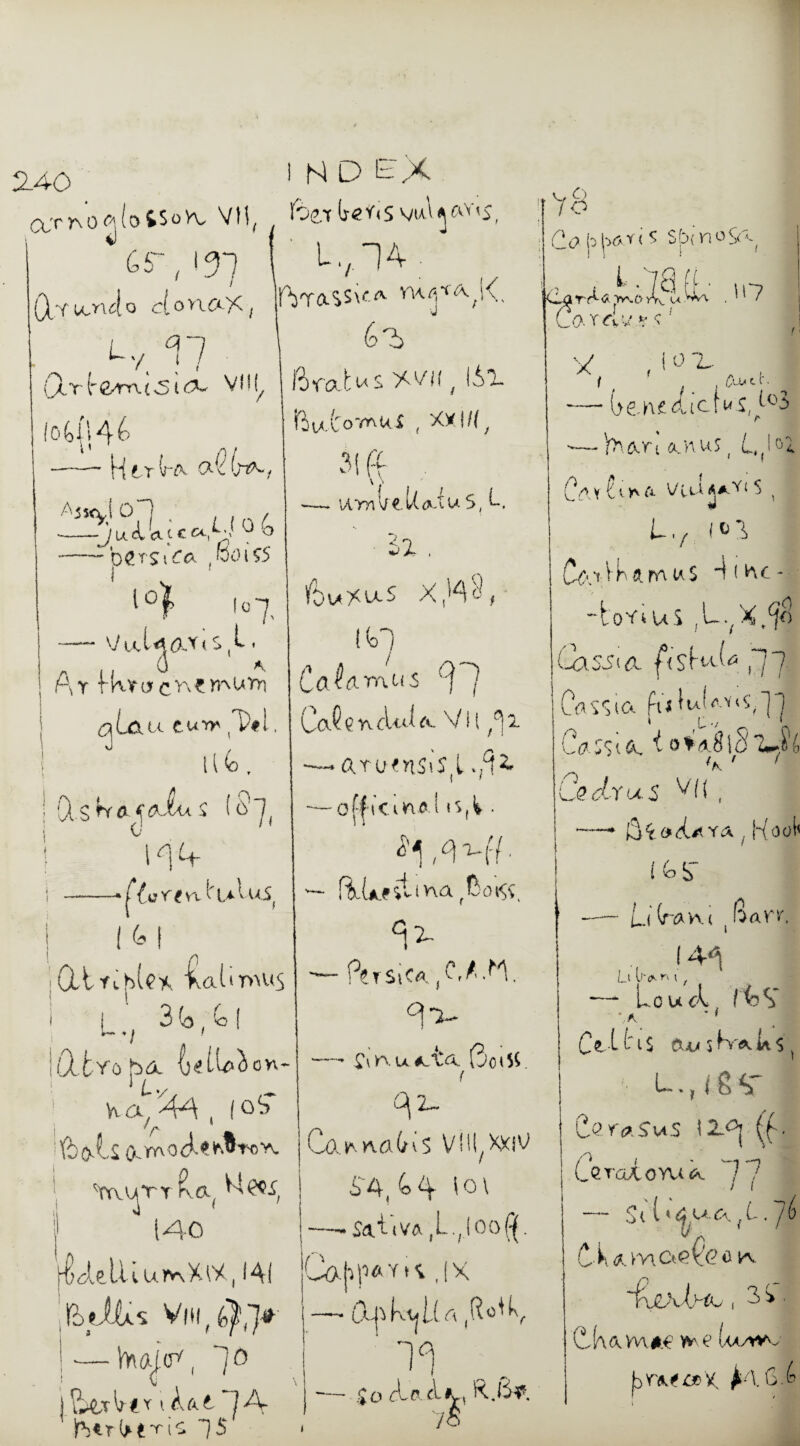 240
INDEX
arnoglosson VII,
65, 197
Arundo donax,
L., 97
Artemisia VIII,
106ff 146
—— Herba alba,
Asso, 107
—— judaica, L., 106
—— persica, Boiss
107
—— vulgaris, L.
Arthrocnemum
glaucum, Del.
116.
Astragalus 187,
194
—— florentulus,
161
Atriplex halimus
L., 36, 61
Atropa belladon-
na, L., 44, 105
Balsamodendron
myrrha, Nees,
140
Bdellium XIX, 141
Bellis VIII,
—— major, 70
Berberidae 74
Berberis 75
Berberis vulgaris,
L., 74.
Brassica nigra, K.
63
Bratus XVII, 152
Butomus, XXIII,
31ff
—— umbellatus, L.
32.
Buxus X, 148,
167
Calamus 97
Calendula VII, 92
—— arvensis, L., 92
—— officinalis, L.
92ff.
—— Palestina, Boiss,
92
—— Persica, C.A.M.
92
—— sinuata, Boiss.
92
Cannabis VIII, XXIV
54, 64 101
—— sativa, L., 100ff.
Capparis, IX
—— aphylla, Roth,
79
—— sodada, R.Br.
78
78
Capparis spinosa,
L. 78ff.
Cardamomum. 117
Carduus
X, 102
—— benedictus, auct. 103
—— marianus, L., 102
Carlina vulgaris,
L., 103
Carthamus tinc-
torius, L., X, 98
Cassia fistula, 77
Cassia fistularis, L., 77
Cassia
Cedrus VII,
—— deodara, Hook
165
—— Libani, Barr.
149
—— Libani, Loud, 165
Celtis australis,
L., 185
Cerasus 129 ff.
Ceratonia 77
—— siliqua, L. 76
Chamaeleon
herba, 35.
Chamaemelum
praecox